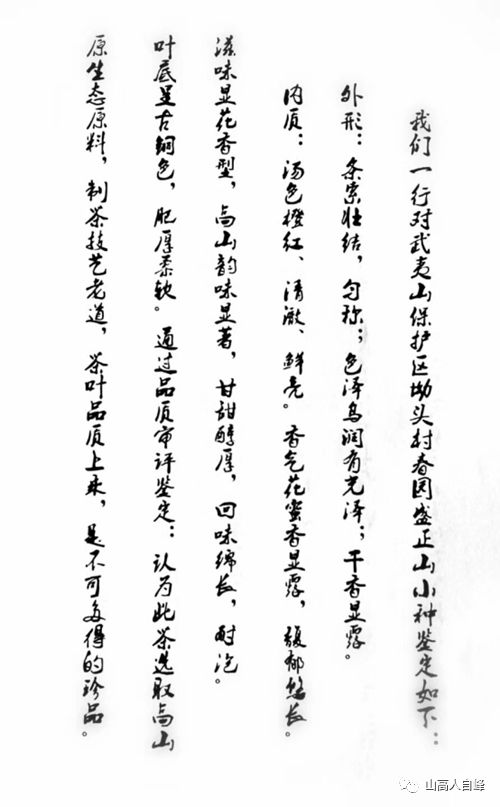 我们一行对武夷山保护区坳头村春园盛正山小种鉴定如下：
外形：条索壮结，匀称；色泽乌润有光泽；干香显露。
内质：汤色橙红、清澈、鲜亮。香气花蜜香显露，馥郁悠长。
滋味显花香型，高山韵味显著，甘甜醇厚，回味绵长，耐泡。
叶底呈古铜色，肥厚柔软。通过品质审评鉴定：认为此茶选取高山
原生态原料，制茶技艺老道，茶叶品质上乘，是不可多得的珍品。
山高人自峰